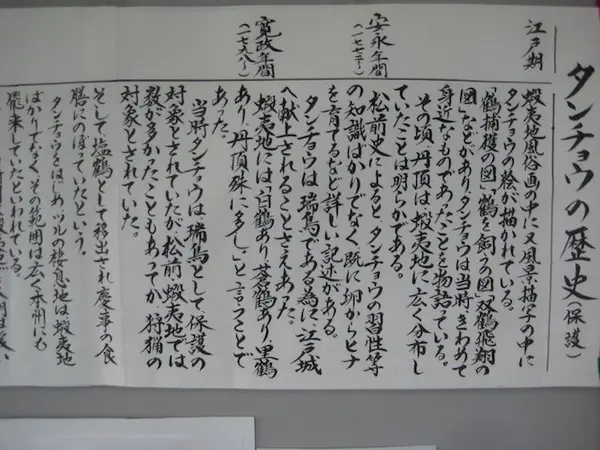 タンチョウの歴史(保護)
江戸期
蝦夷地風俗画の中に又風景描写の中に
タンチョウの絵が描かれている。
「鶴捕獲の図」「鶴を飼うの図」「双鶴飛翔の
図」などがありタンチョウは当時きわめて
身近なものであったことを物語っている。
その頃、丹頂は蝦夷地に広く分布し
ていたことは明らかである。
安永年間
(一七七二〜)
松前史によると タンチョウの習性等
の知識ばかりでなく既に卵からヒナ
を育てるなど詳しい記述がある。
タンチョウは瑞鳥である為に江戸城
へ献上されることさえあった。
寛政年間
(一七九八〜)
蝦夷地には「白鶴あり 蒼鶴あり 黒鶴
あり、丹頂殊に多し」と言うことで
あった。
当時タンチョウは瑞鳥として保護の
対象とされていたが松前、蝦夷地では
数が多かったこともあってか、狩猟の
対象とされていた。
そして塩鶴として移出され慶事の食
膳にのぼっていたという。
タンチョウをはじめツルの棲息地は蝦夷地
ばかりでなくその範囲は広く本州にも
飛来していたといわれている。